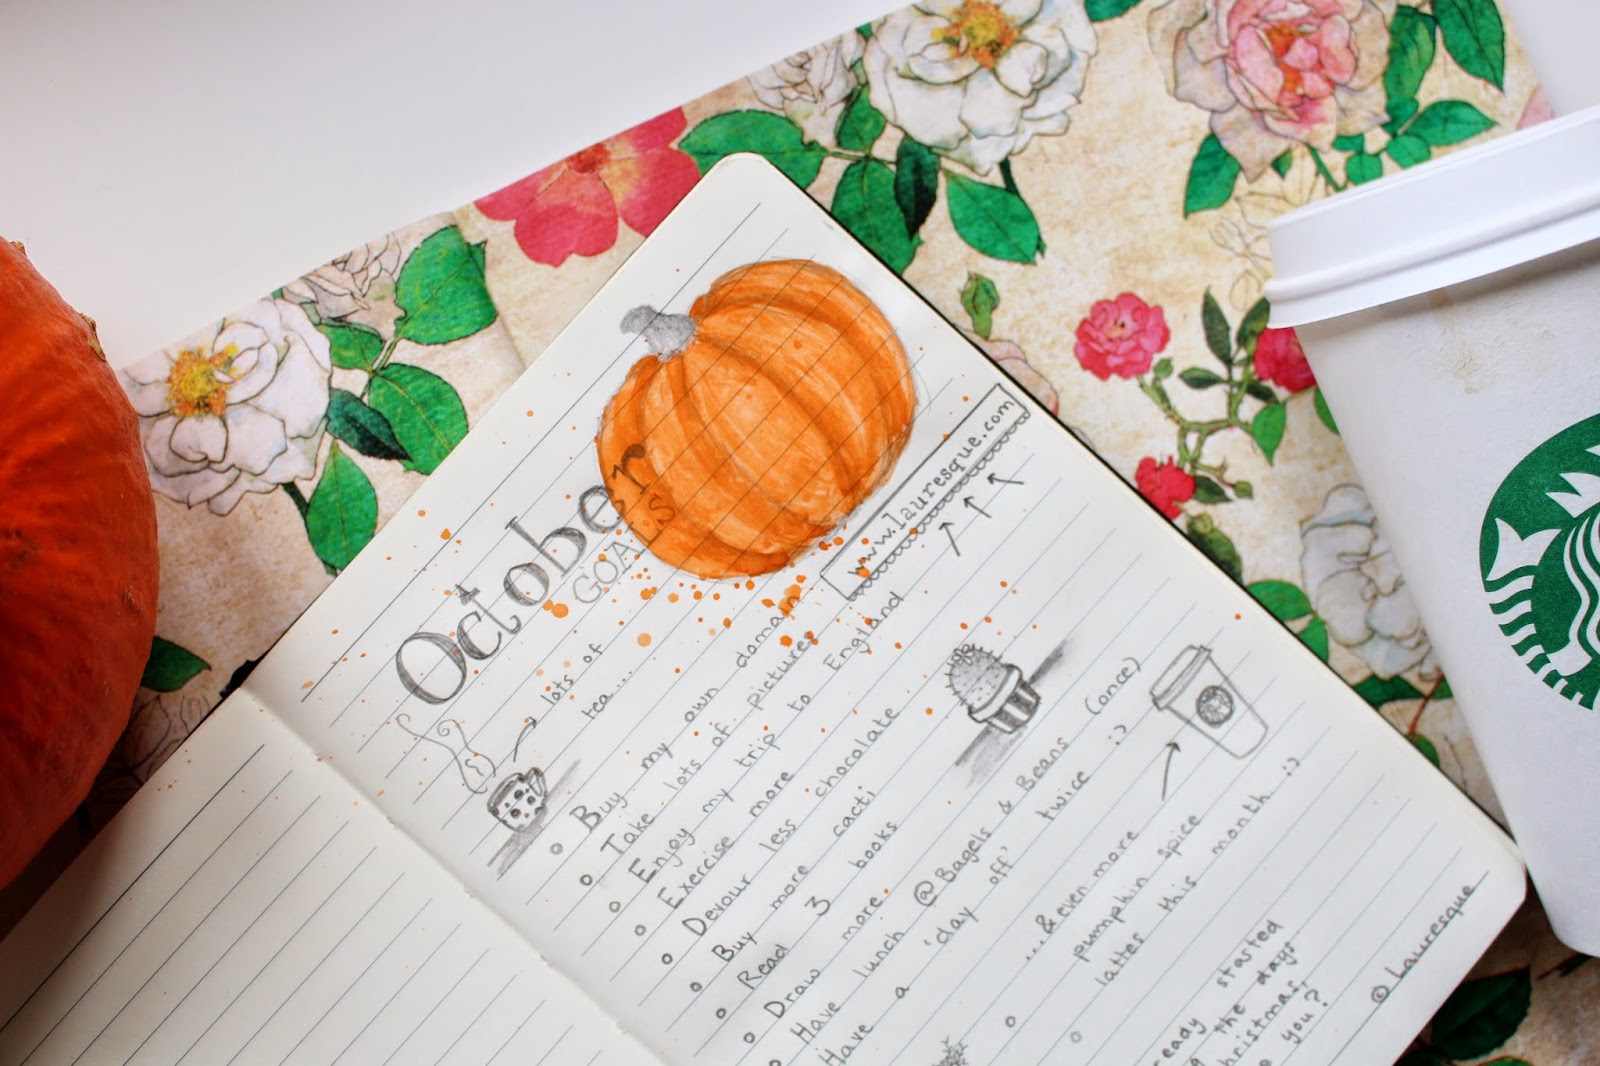 October
GOALS
www.lauresque.com
lots of
tea...
Buy my own domain
Take lots of pictures
Enjoy my trip to England
Exercise more
Devour less chocolate
Buy more cacti
Read 3 books
Draw more
Have lunch @ Bagels & Beans (once)
Have a 'day off' twice :)
...& even more
pumphin spice
lattes this month :)
stasted
the days
© Lauresque